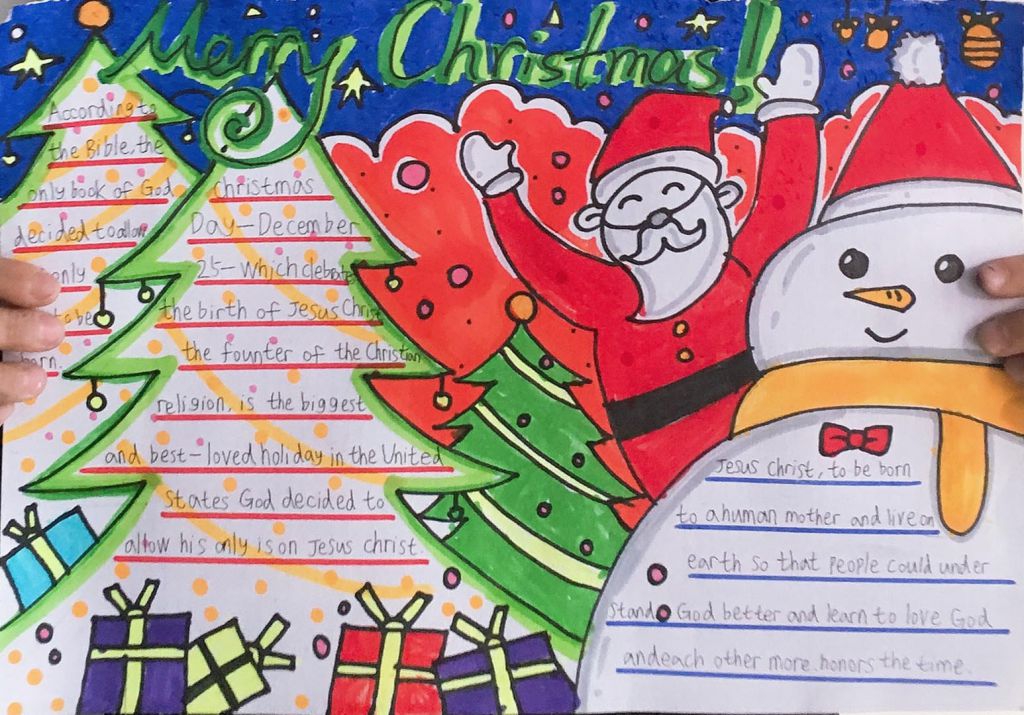 Merry Christmas!
According to
the Bible, the
only book of God
decided to allow
only
to be
rn.
christmas
Day—December
25—which clebrate
the birth of Jesus Christ
the founter of the Christian
religion, is the biggest
and best-loved holiday in the United
States God decided to
allow his only is on Jesus christ.
Jesus christ, to be born
to a human mother and live on
earth so that people could under
stand God better and learn to love God
andeach other more.honors the time.